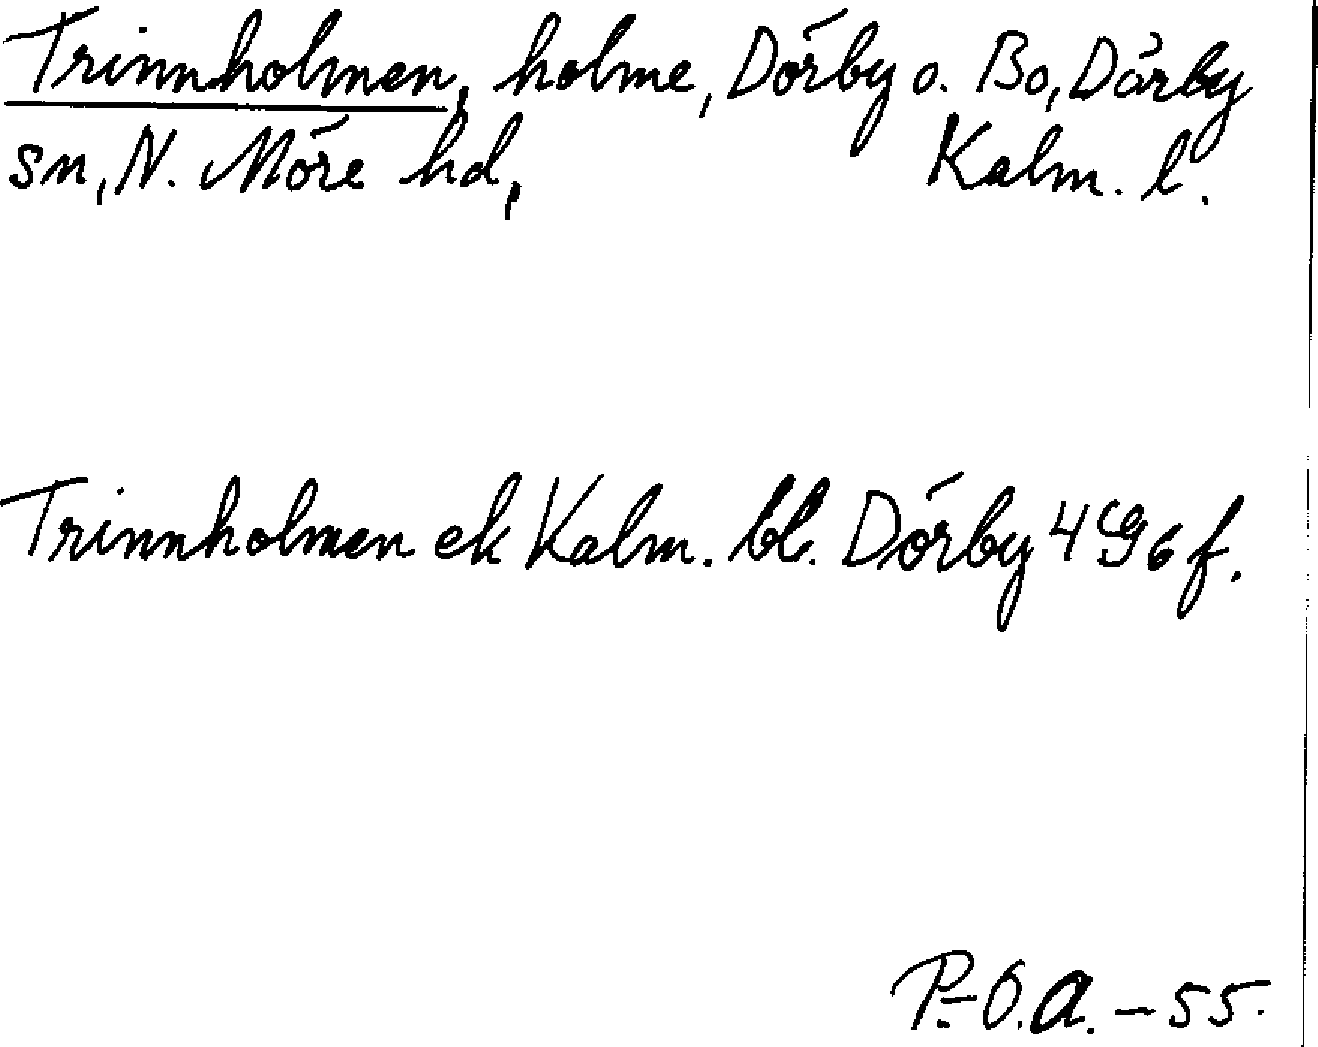 Trinnholmen, holme, Dörby o. Bo, Dörby
sn, N. Möre hd, Kalm. l.
Trinnholmen ek Kalm. bl. Dörby 496 f.
P.-O.A. - 55.